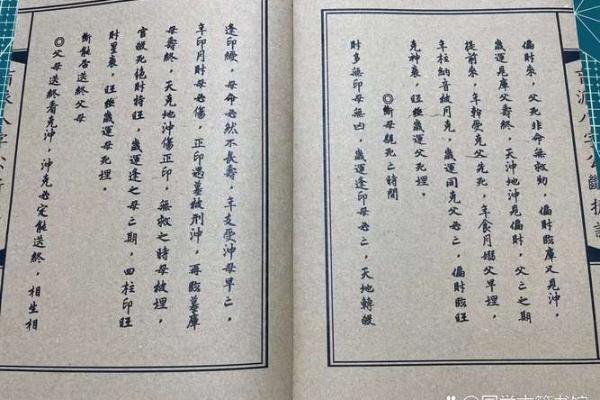 偏財衰，父死非命無救助，偏財臨庫又見沖，
歲運見庫父壽終，天沖地沖克偏財，父亡之期
提前來，年幹受克父先死，年食月梟父早埋，
年柱納音被月克，歲運同克父必亡，偏財臨旺
克神衰，旺極歲運父死埋。
◎斷母親死亡時間
財多無印母無凶，歲運逢印母必亡，天地轉殺
逢印綬，母命必然不長壽，年支受沖母早亡，
年印月財母必傷，正印遇墓被刑沖，再臨墓庫
母壽終，天克地沖傷正印，無救之時母被埋，
官殺死絕財特旺，歲運逢之母亡期，四柱印旺
財星衰，旺極歲運母死埋。
斷能否送終父母
◎父母送終看克沖，沖克必定能送終，相生相